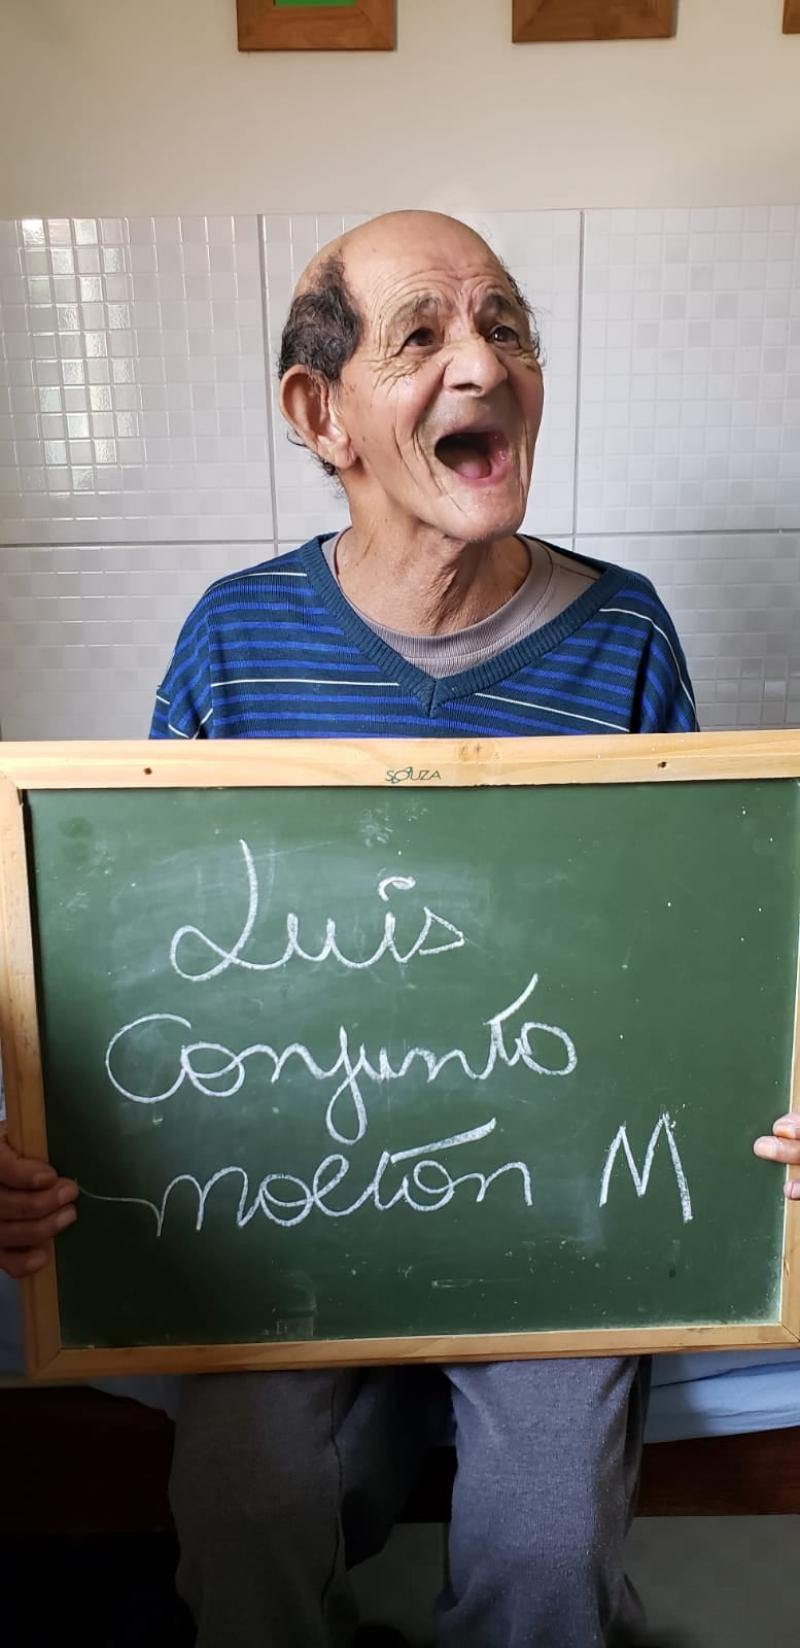 SOUZA
Luis
Conjunto
moletón M